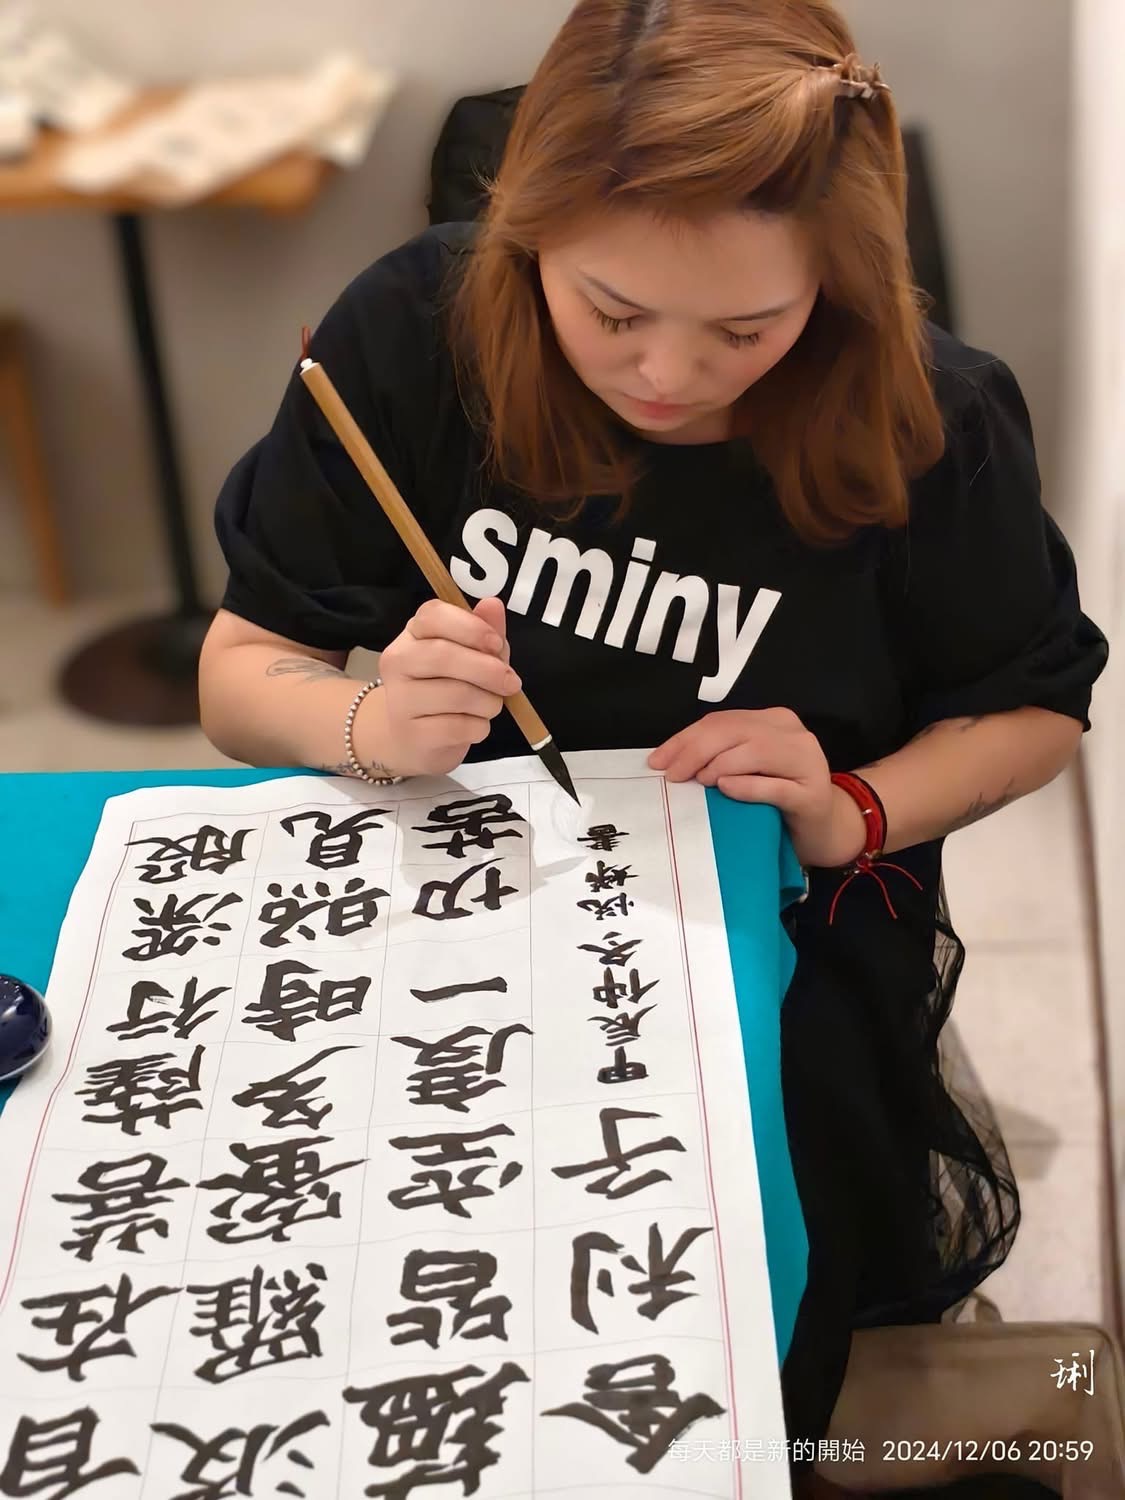 sminy
自在菩薩行深般
波羅蜜多時照見
蘊皆空度一切苦
舍利子
甲辰仲冬悅娣書
琍
每天都是新的開始 2024/12/06 20:59